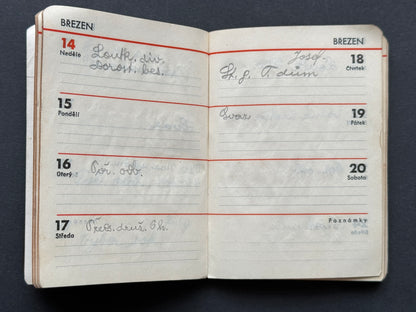 BŘEZEN
14
Neděle
Loutk. div.
Dorost. bes.
15
Pondělí
16
Úterý
Poř. odb.
17
Středa
Před. druž. Ok.
BŘEZEN
18
Čtvrtek
Josef.
St. g. T. dům
19
Pátek
Svaz
20
Sobota
Poznámky